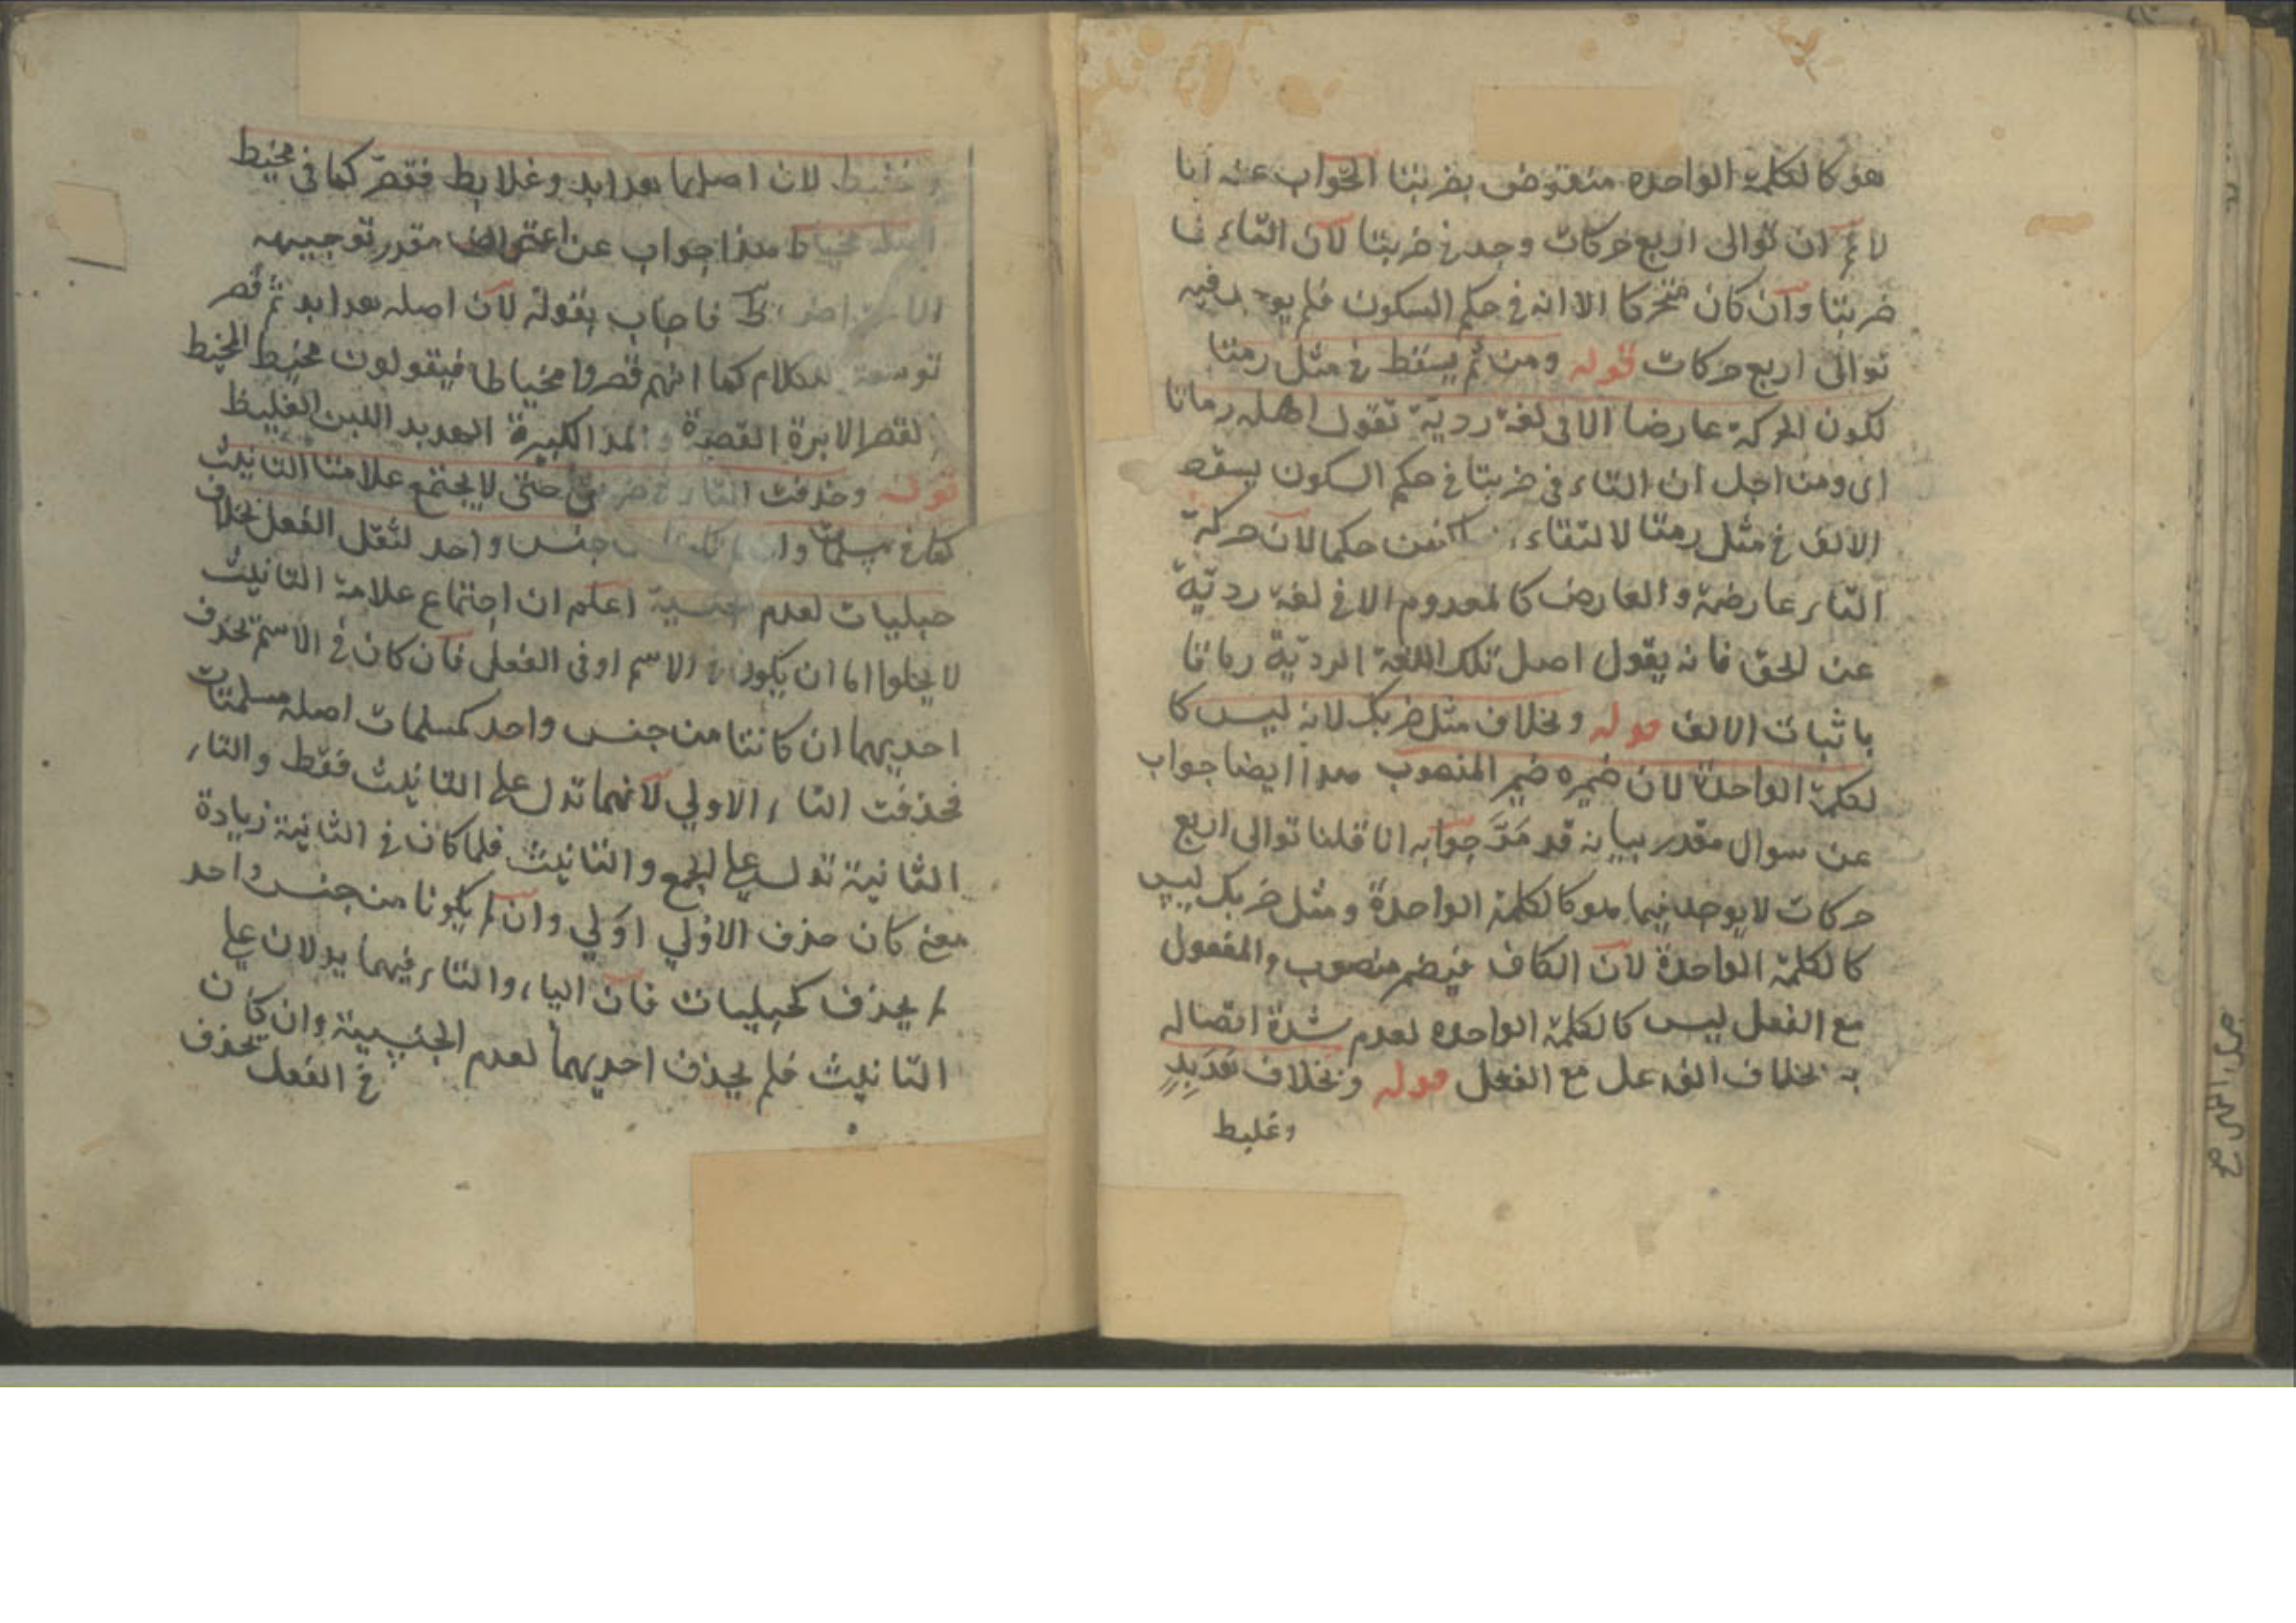 هو كالكلمة الواحدة منقوض بضربتا الجواب عنه انا
لا نم ان توالى اربع حركات وجد في ضربتا لان التاء في
ضربتا وان كان متحركا الا انه في حكم السكون فلم يوجد فيه
توالى اربع حركات قوله ومن ثم يسقط في مثل رمتا
لكون الحركة عارضا الا في لغة ردية تقول اهله رماتا
اى ومن اجل ان التاء في ضربتا في حكم السكون يسقط
الالف في مثل رمتا لالتقاء الساكنين حكما لان حركة
التاء عارضة والعارض كالمعدوم الا في لغة ردية
عن الحق فانه يقول اهل تلك اللغة الردية رماتا
باثبات الالف قوله وبخلاف مثل ضربك لانه ليس كا
لكلمة الواحدة لان ضميره ضمير المنصوب هذا ايضا جواب
عن سوال مقدر بيانه قد مَرَّ جوابه انا قلنا توالى اربع
حركات لا يوجد فيما هو كالكلمة الواحدة ومثل ضربك ليس
كالكلمة الواحدة لان الكاف ضمير منصوب والمفعول
مع الفعل ليس كالكلمة الواحدة لعدم شدة اتصاله
به بخلاف الفاعل مع الفعل قوله وبخلاف هُدَبِدٍ
وغلبط
لان اصلهما هدابد وغلابط فقصر كما في مخيط
اصله مخياط هذا جواب عن اعتراض مقدر توجيهه
فاجاب بقوله لان اصله هدابد ثم قصر
توسعة للكلام كما انهم قصروا مخياطا فيقولون مخيط المخيط
بالقصر الابرة القصيرة وبالمد الكبيرة الهدبد اللبن الغليظ
قوله وحذفت التاء في ضربن حتى لا يجتمع علامتا التانيث
كما في مسلمات وان لم تكونا من جنس واحد لثقل الفعل بخلاف
حبليات لعدم الجنسية اعلم ان اجتماع علامة التانيث
لا يخلوا اما ان يكون في الاسم او في الفعل فان كان في الاسم تحذف
احديهما ان كانتا من جنس واحد كمسلمات اصله مسلمتات
فحذفت التاء الاولي لانهما تدل على التانيث فقط والتاء
الثانية تدل على الجمع والتانيث فلما كان في الثانية زيادة
معنى كان حذف الاولي اولي وان لم يكونا من جنس واحد
لم يحذف كحبليات فان الياء والتاء فيهما يدلان على
التانيث فلم يحذف احديهما لعدم الجنسية وان كان
في الفعل يحذف